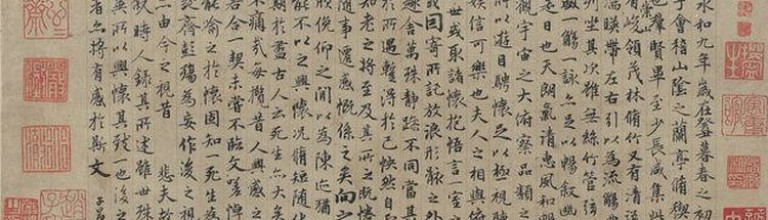 永和九年歲在癸丑暮春之初
于會稽山陰之蘭亭脩稧
也群賢畢至少長咸集此
有峻領茂林脩竹又有清流
崇山
湍暎帶左右引以為流觴曲
列坐其次雖無絲竹管弦
盛一觴一詠亦足以暢敘幽
是日也天朗氣清惠風和暢
觀宇宙之大俯察品類之
所以遊目騁懷足以極視聽
娛信可樂也夫人之相與俯
世或取諸懷抱悟言一室之
或因寄所託放浪形骸之外
趣舍萬殊靜躁不同當其
於所遇暫得於己怏然自足
知老之將至及其所之既惓
隨事遷感慨係之矣向之
欣俛仰之閒以為陳迹猶
能不以之興懷況脩短隨化
期於盡古人云死生亦大矣
不痛哉每攬昔人興感之
若合一契未嘗不臨文嗟悼
能喻之於懷固知一死生為
誕齊彭殤為妄作後之視
亦由今之視昔 悲夫故
敘時人錄其所述雖世殊
異所以興懷其致一也後之
者亦將有感於斯文